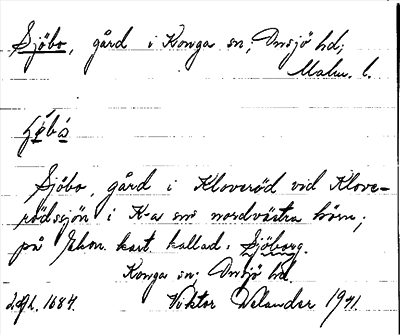 Sjöbo, gård i Konga sn; Onsjö hd;
Malm. l.
Sjöbo, gård i Kloveröd vid Klove-
rödssjön i K-a sns nordvästra hörn;
på Ekon. kart. kallad: Sjöborg.
Konga sn; Onsjö hd.
Viktor Welander 1941.